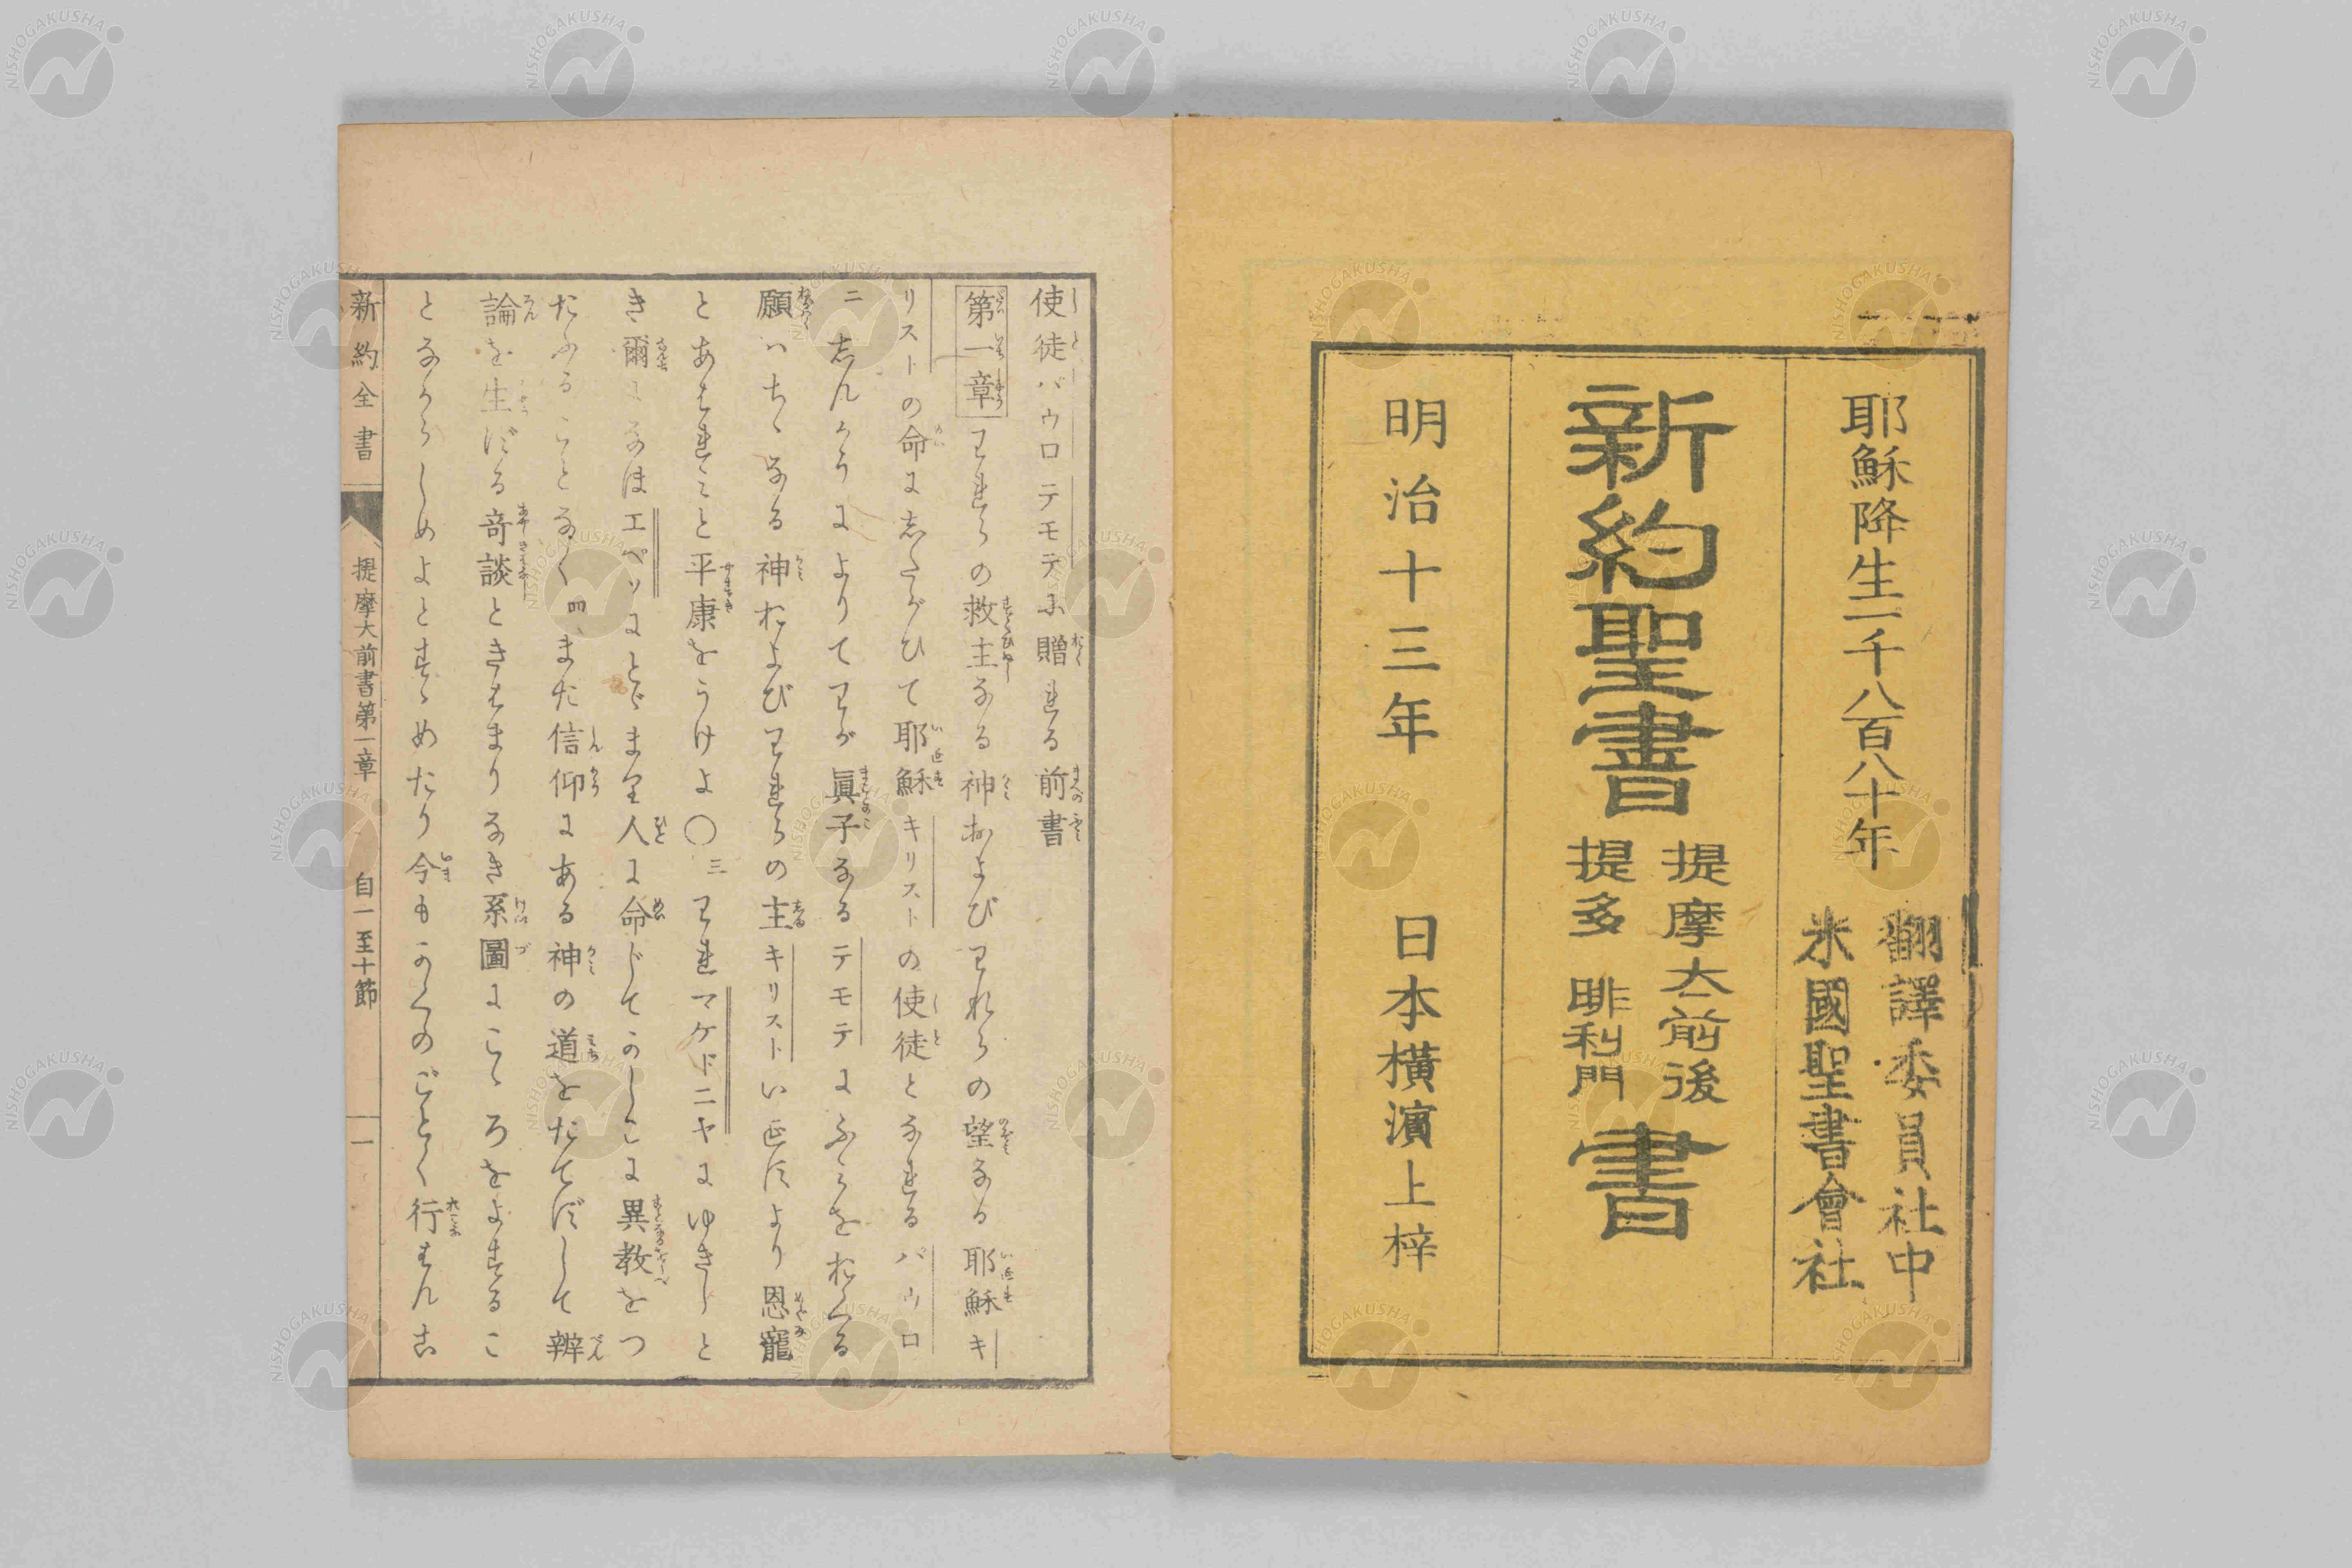 耶穌降生一千八百八十年
翻譯委員社中
米國聖書會社
新約聖書
提摩太前後
提多 腓利門
書
明治十三年 日本橫濱上梓
使徒パウロテモテに贈れる前書
第一章 われらの救主なる神およびわれらの望なる耶穌キ
リストの命に志たがひて耶穌キリストの使徒となれるパウロ
二 志んかうによりてわが眞子なるテモテにふみをおくる
願ハちゝなる神およびわれらの主キリストいエスより恩寵
とあはれミと平康をうけよ〇三 われマケドニヤにゆきしと
き爾になほエペソにとゞまり人に命じてかしこに異教をつ
たふることなく四また信仰にある神の道をたてずして辨
論を生ずる奇談ときはまりなき系圖にこゝろをよするこ
となからしめよとすゝめたり今もかくのごとく行はんこ
新約全書 提摩太前書第一章 自一至十節 一
NISHOGAKUSHA